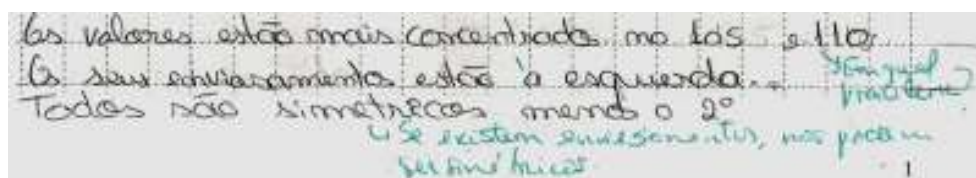 Os valores estão mais concentrado no 105 e 110
O seu enviasamento estão à esquerda.. Em qual
Todos são simetrecos menos o 2º
↳ Se existem enviesamentos, não podem
ser simétricos